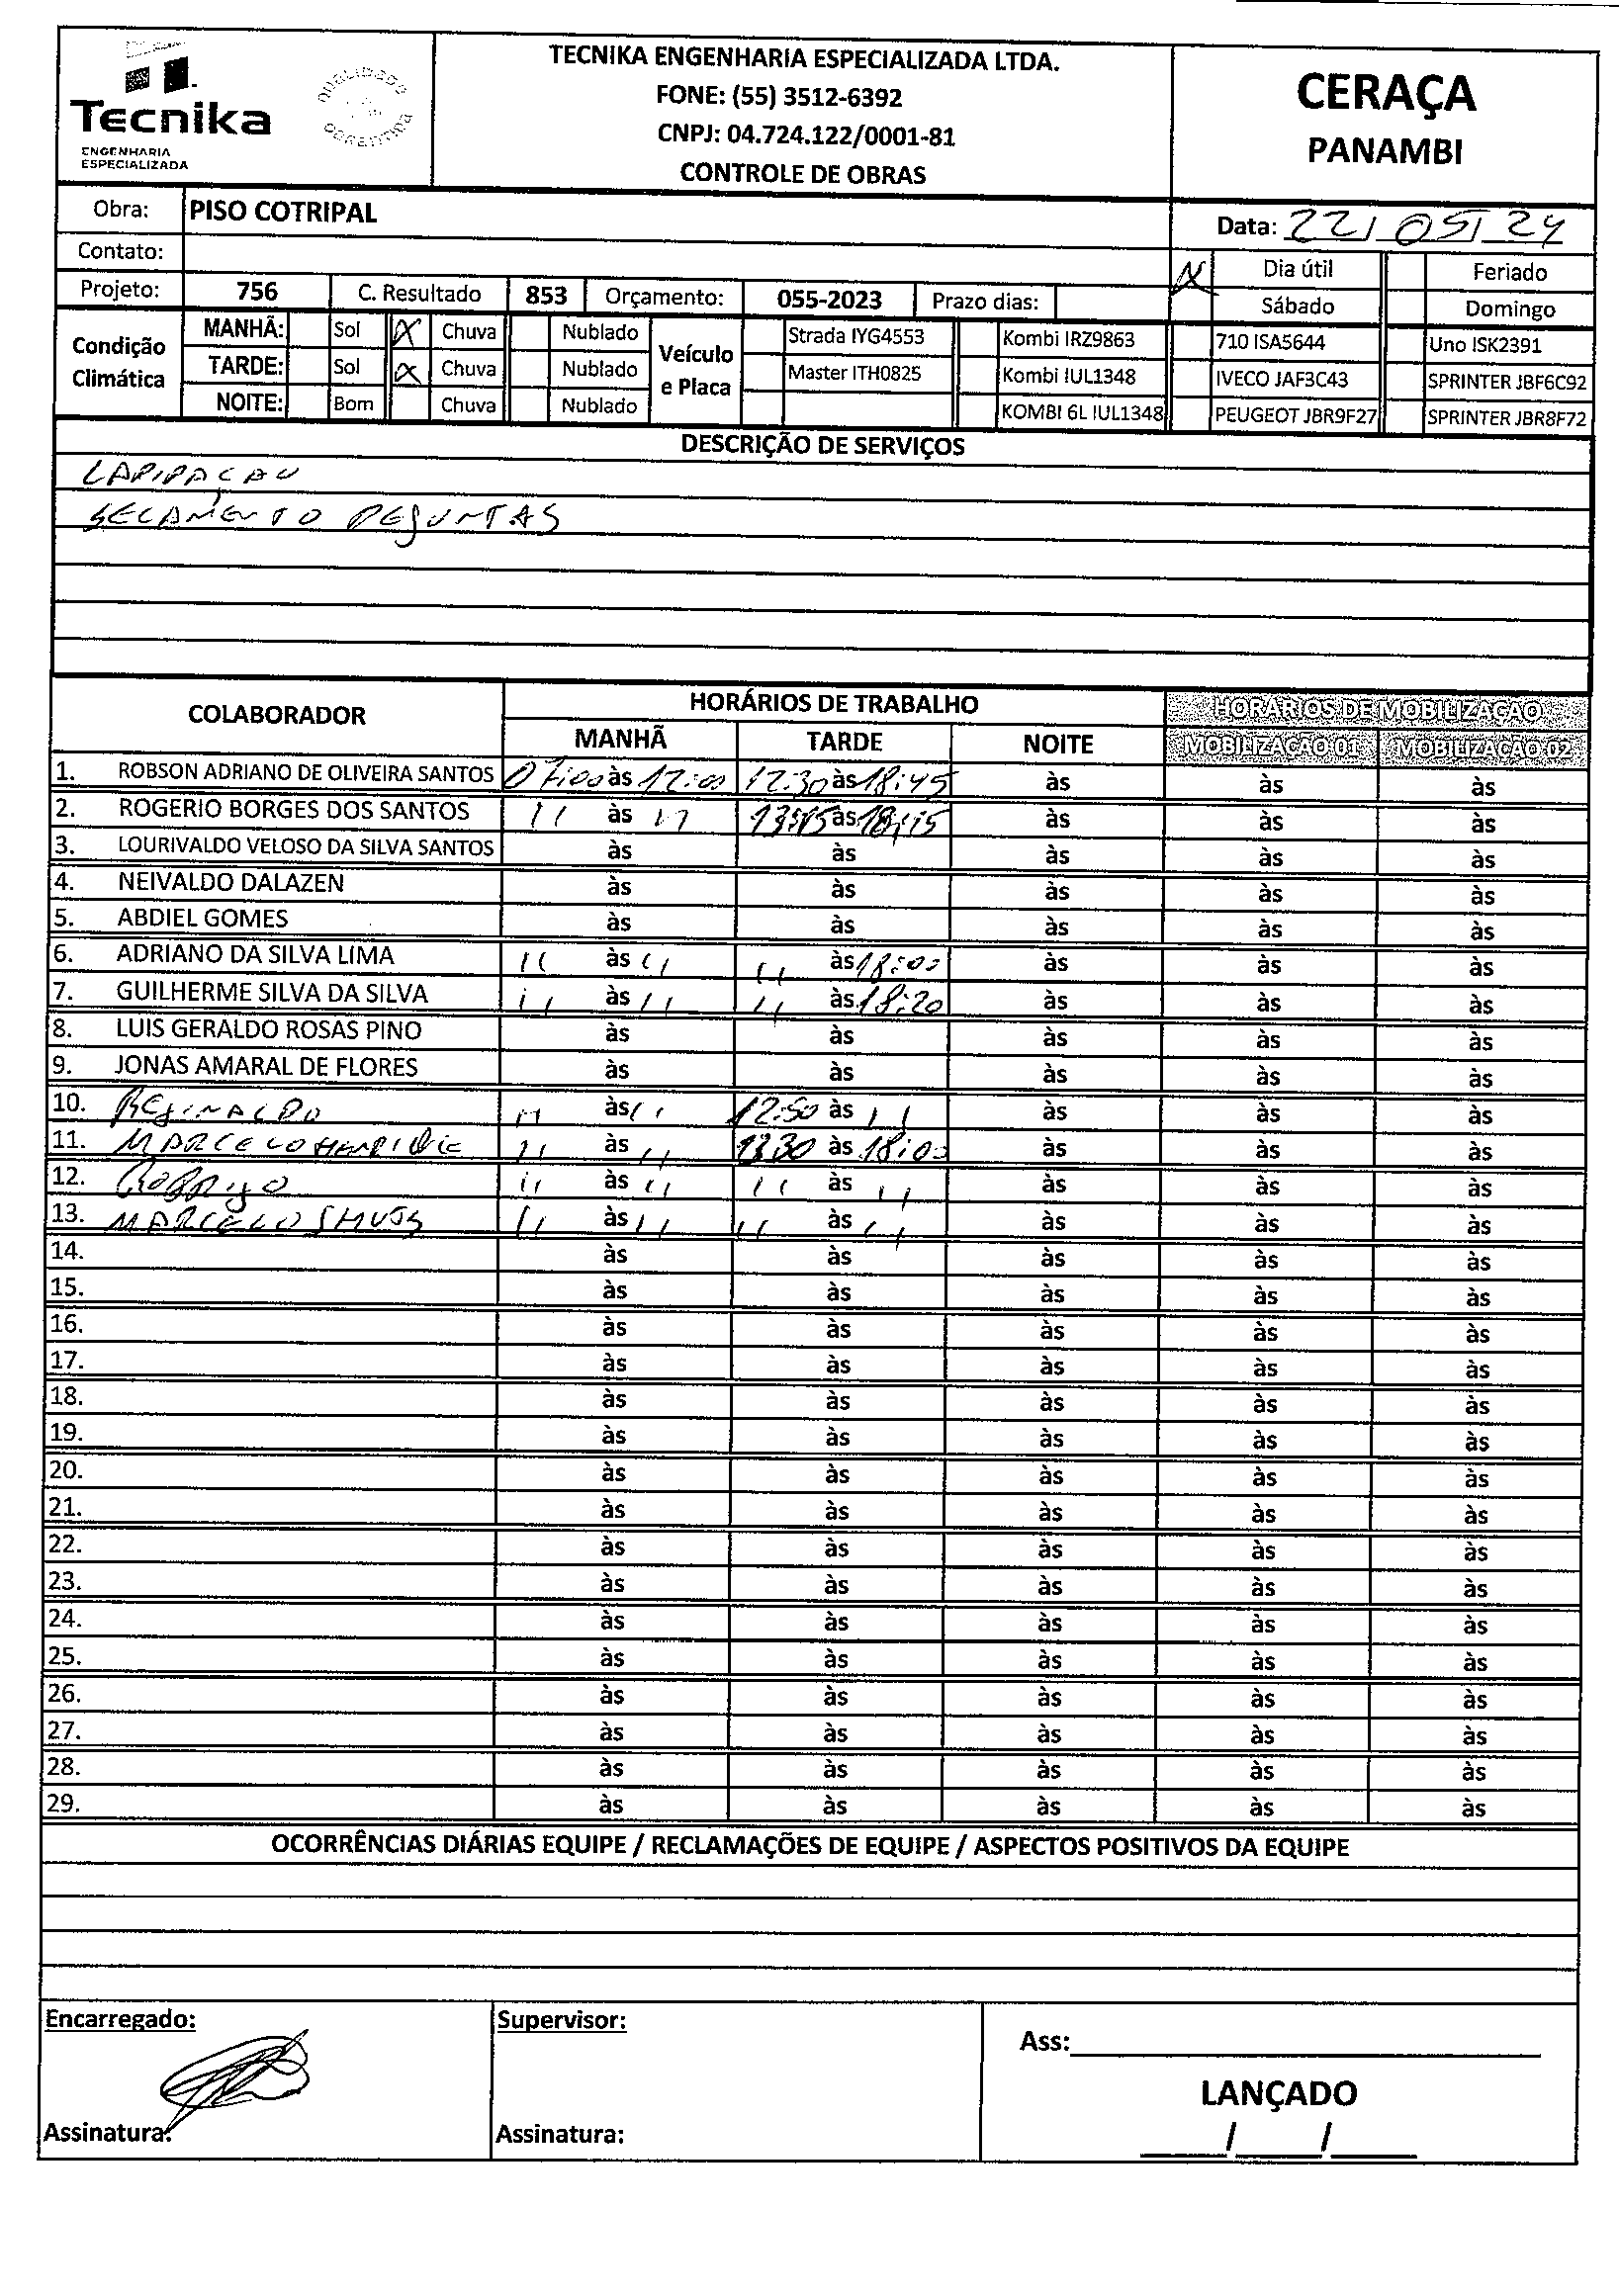 Tecnika
ENGENHARIA
ESPECIALIZADA
QUALIDADE
GARANTIDA
TECNIKA ENGENHARIA ESPECIALIZADA LTDA.
FONE: (55) 3512-6392
CNPJ: 04.724.122/0001-81
CONTROLE DE OBRAS
CERAÇA
PANAMBI
Obra: PISO COTRIPAL
Data: 22/05/24
Contato:
X Dia útil Feriado
Projeto: 756 C. Resultado 853 Orçamento: 055-2023 Prazo dias:
Sábado Domingo
Condição Climática
MANHÃ: Sol X Chuva Nublado
TARDE: Sol X Chuva Nublado
NOITE: Bom Chuva Nublado
Veículo e Placa
Strada IYG4553 Kombi IRZ9863 710 ISA5644 Uno ISK2391
Master ITH0825 Kombi IUL1348 IVECO JAF3C43 SPRINTER JBF6C92
KOMBI 6L IUL1348 PEUGEOT JBR9F27 SPRINTER JBR8F72
DESCRIÇÃO DE SERVIÇOS
LAPIDAÇAO
SELAMENTO DE JUNTAS
COLABORADOR HORÁRIOS DE TRABALHO HORÁRIOS DE MOBILIZAÇÃO
MANHÃ TARDE NOITE MOBILIZAÇÃO 01 MOBILIZAÇÃO 02
1. ROBSON ADRIANO DE OLIVEIRA SANTOS 07:00 às 12:00 12:30 às 18:45 às às às
2. ROGERIO BORGES DOS SANTOS 11 às 11 13:15 às 18:15 às às às
3. LOURIVALDO VELOSO DA SILVA SANTOS às às às às às
4. NEIVALDO DALAZEN às às às às às
5. ABDIEL GOMES às às às às às
6. ADRIANO DA SILVA LIMA 11 às 11 11 às 18:00 às às às
7. GUILHERME SILVA DA SILVA 11 às 11 11 às 18:20 às às às
8. LUIS GERALDO ROSAS PINO às às às às às
9. JONAS AMARAL DE FLORES às às às às às
10. REJINALDO 11 às 11 12:50 às 11 às às às
11. MARCELO HENRIQUE 11 às 11 13:30 às 18:00 às às às
12. RODRIGO 11 às 11 11 às 11 às às às
13. MARCELO 11 às 11 11 às 11 às às às
14. às às às às às
15. às às às às às
16. às às às às às
17. às às às às às
18. às às às às às
19. às às às às às
20. às às às às às
21. às às às às às
22. às às às às às
23. às às às às às
24. às às às às às
25. às às às às às
26. às às às às às
27. às às às às às
28. às às às às às
29. às às às às às
OCORRÊNCIAS DIÁRIAS EQUIPE / RECLAMAÇÕES DE EQUIPE / ASPECTOS POSITIVOS DA EQUIPE
Encarregado: Supervisor:
Ass:
LANÇADO
Assinatura: Assinatura:
/ /